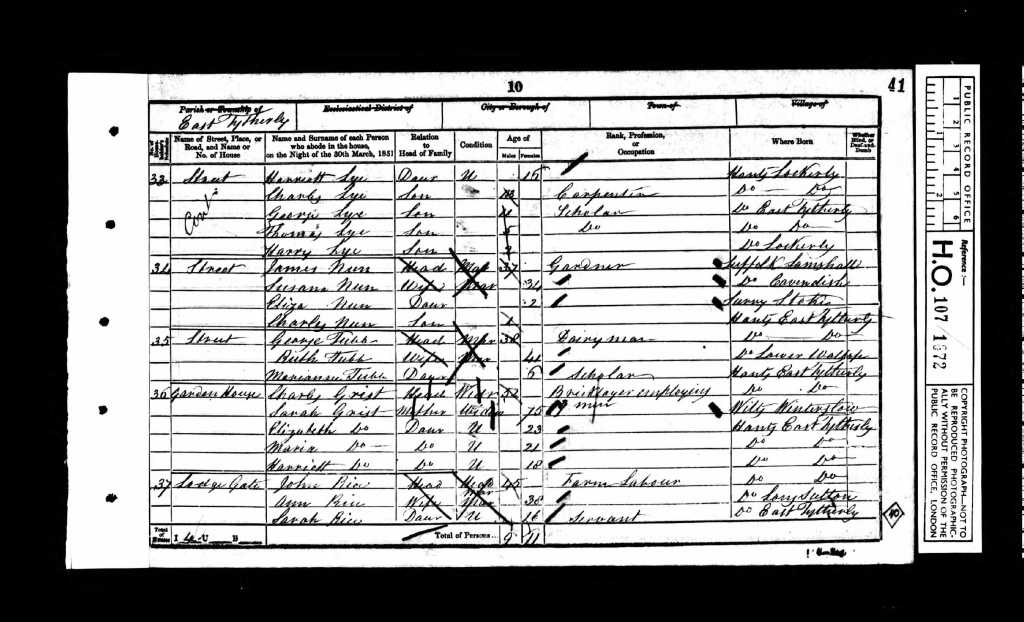 10
41
Parish or Township of Ecclesiastical District of City or Borough of Town of Village of
East Tytherly
Name of Street, Place, or Road, and Name or No. of House Name and Surname of each Person who abode in the house, on the Night of the 30th March, 1851 Relation to Head of Family Condition Age of Males Females Rank, Profession, or Occupation Where Born Whether Blind, or Deaf-and-Dumb
33 Street Harriett Lye Daur U 15 Hants Lockerly
Cont Charles Lye Son Carpenter Do Do
George Lye Son 11 Scholar Do East Tytherly
Thomas Lye Son 5 Do Do Do
Harry Lye Son 2 Do Lockerly
34 Street James Nun Head Mar 37 Gardner Suffolk
Susana Nun Wife Mar 34 Do Cavendish
Eliza Nun Daur 2 Surry Stoke
Charles Nun Son 1 Hants East Tytherly
35 Street George Tubb Head Mar 38 Dairyman Do Do
Ruth Tubb Wife Mar 41 Do Lower Wallop
Marianne Tubb Daur 6 Scholar Hants East Tytherly
36 Garden House Charles Grist Head Widr 52 Bricklayer employing Do Do
men
Sarah Grist Mother Widow 75 Wilts Winterslow
Elizabeth Do Daur U 23 Hants East Tytherly
Maria Do Do U 21 Do Do
Harriett Do Do U 18 Do Do
37 Lodge Gate John Rice Head Mar 45 Farm Labour Do Do
Ann Rice Wife Mar 38 Do Long Sutton
Sarah Rice Daur U 16 Servant Do East Tytherly
Total of Houses I 4 U B Total of Persons 9 11
40
PUBLIC RECORD OFFICE
1 2 3 4 5 6
1 2
Reference:-
H.O. 107/1672
COPYRIGHT PHOTOGRAPH—NOT TO BE REPRODUCED PHOTOGRAPHICALLY WITHOUT PERMISSION OF THE PUBLIC RECORD OFFICE, LONDON